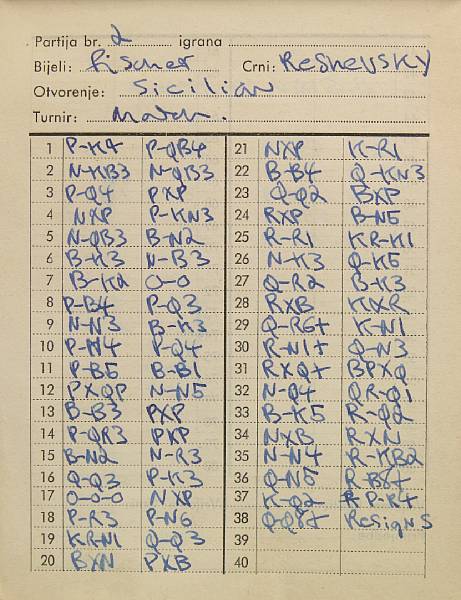 Partija br. 2 igrana
Bijeli: Fischer Crni: Reshevsky
Otvorenje: Sicilian
Turnir: Match.
1 P-K4 P-QB4
2 N-KB3 N-QB3
3 P-Q4 PXP
4 NXP P-KN3
5 N-QB3 B-N2
6 B-K3 N-B3
7 B-K2 O-O
8 P-B4 P-Q3
9 N-N3 B-K3
10 P-N4 P-Q4
11 P-B5 B-B1
12 PXQP N-N5
13 B-B3 PXP
14 P-QR3 PXP
15 B-N2 N-R3
16 Q-Q3 P-K3
17 O-O-O NXP
18 P-R3 P-N6
19 KRN1 Q-Q3
20 BXN PXB
21 NXP K-R1
22 B-B4 Q-KN3
23 Q-Q2 BXP
24 RXP B-N5
25 R-R1 KR-K1
26 N-K3 Q-K5
27 Q-R2 B-K3
28 RXB KXR
29 Q-R6+ K-N1
30 R-N1+ Q-N3
31 RXQ+ BPXQ
32 N-Q4 QR-Q1
33 B-K5 R-Q2
34 NXB RXN
35 N-N4 R-KB2
36 Q-N5 R-B8+
37 K-Q2 P-R4
38 Q-Q8+ Resigns
39
40